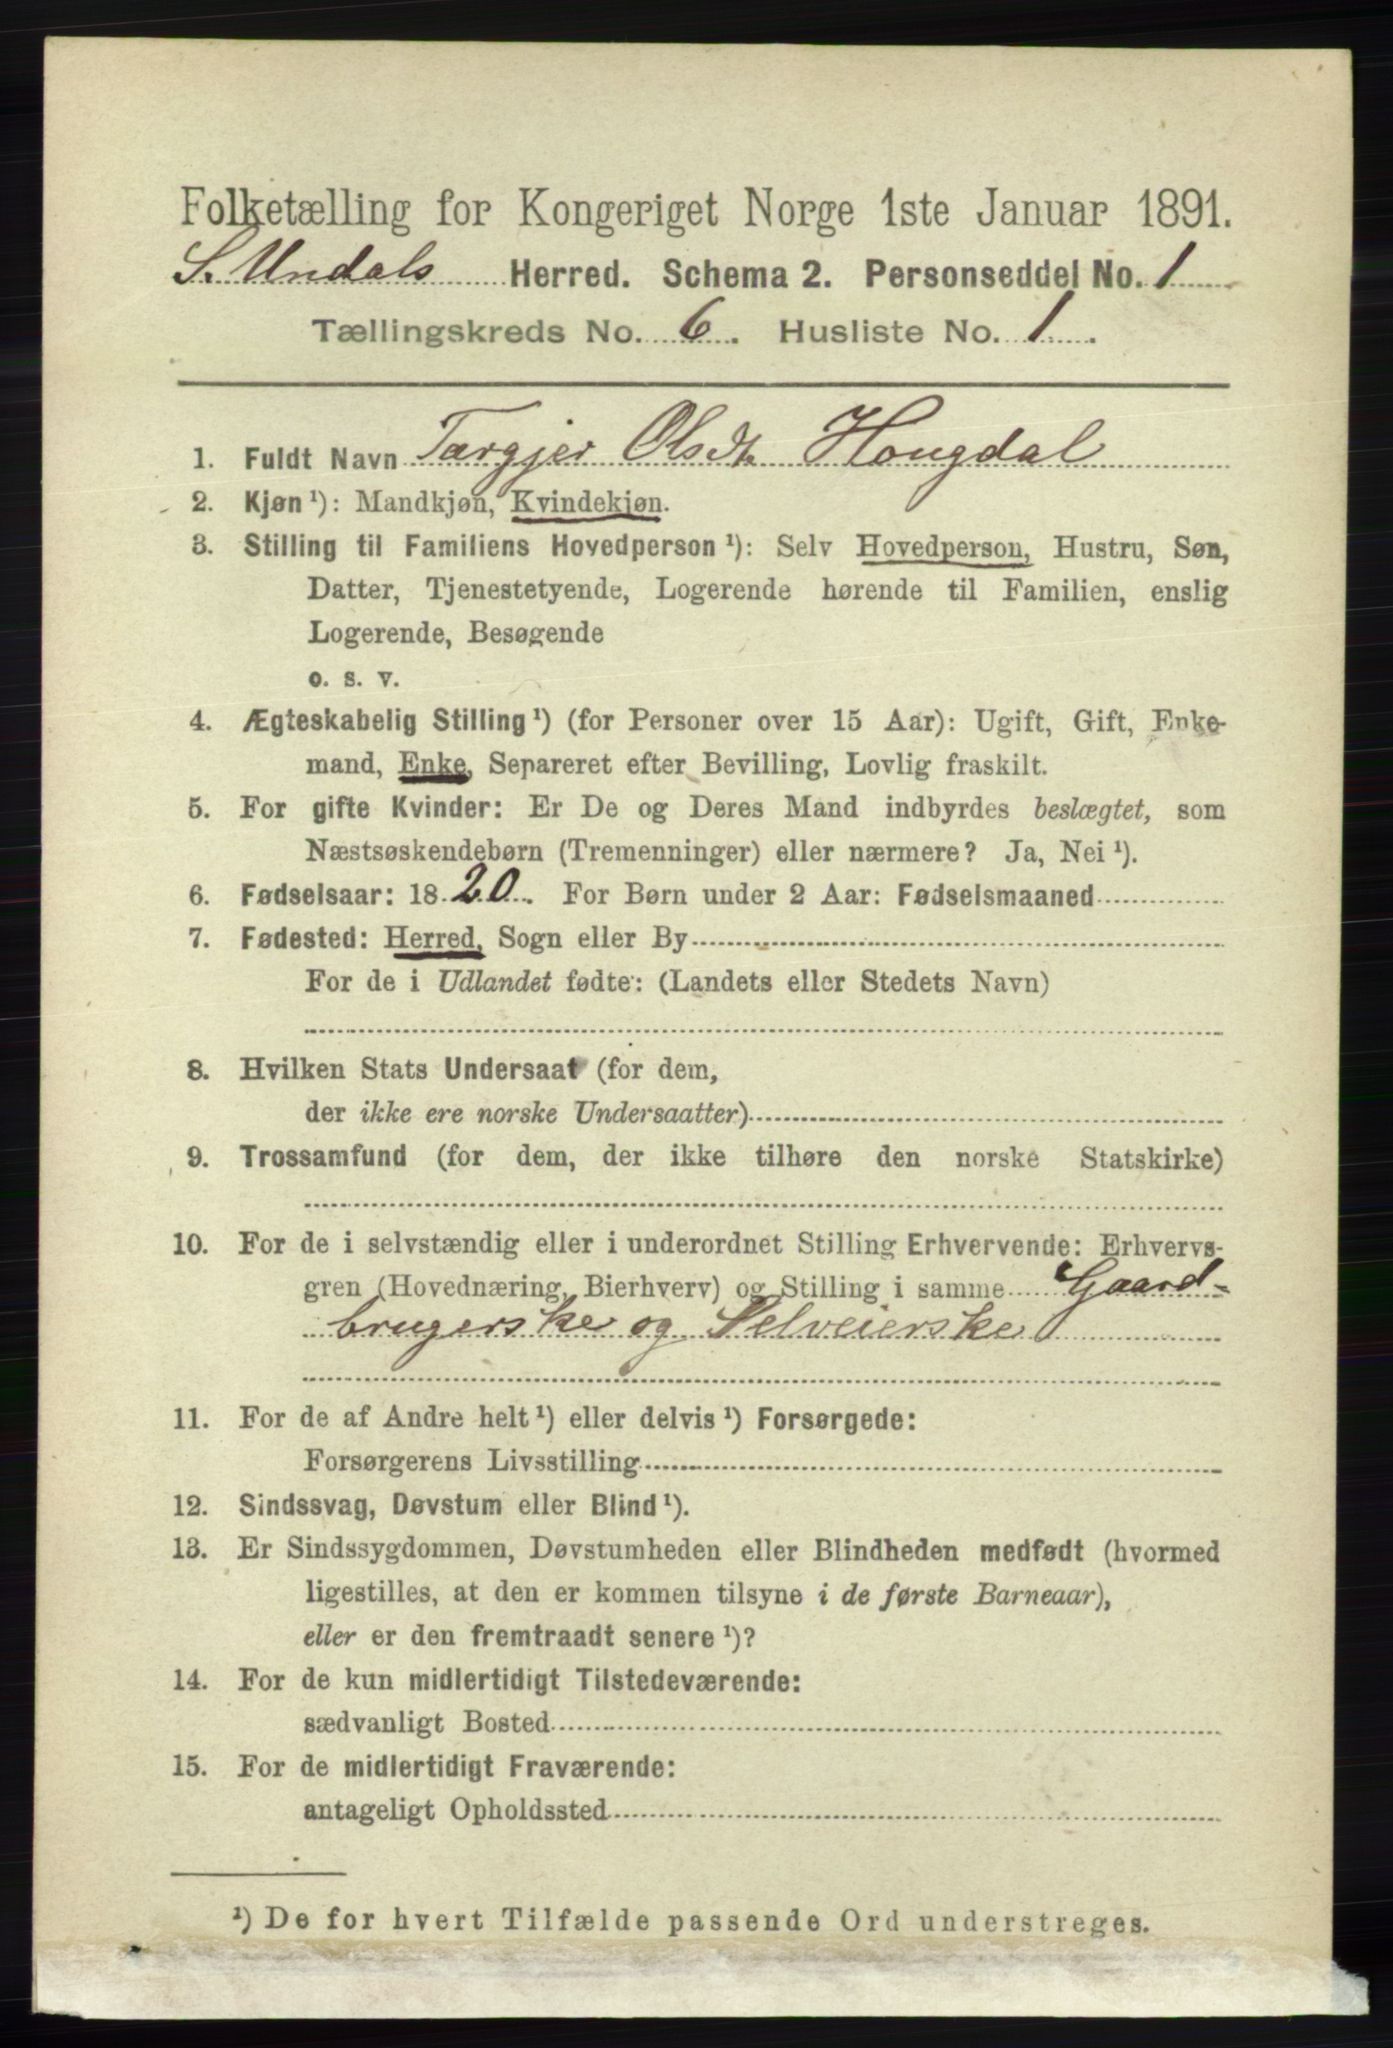 Folketælling for Kongeriget Norge 1ste Januar 1891.
S. Undals Herred. Schema 2. Personseddel No. 1
Tællingskreds No. 6. Husliste No. 1.
1. Fuldt Navn Targjer Olsdt. Hougdal
2. Kjøn ¹): Mandkjøn, Kvindekjøn.
3. Stilling til Familiens Hovedperson ¹): Selv Hovedperson, Hustru, Søn,
Datter, Tjenestetyende, Logerende hørende til Familien, enslig
Logerende, Besøgende
o. s. v.
4. Ægteskabelig Stilling ¹) (for Personer over 15 Aar): Ugift, Gift, Enke-
mand, Enke, Separeret efter Bevilling, Lovlig fraskilt.
5. For gifte Kvinder: Er De og Deres Mand indbyrdes beslægtet, som
Næstsøskendebørn (Tremenninger) eller nærmere? Ja, Nei ¹).
6. Fødselsaar: 1820. For Børn under 2 Aar: Fødselsmaaned
7. Fødested: Herred, Sogn eller By
For de i Udlandet fødte: (Landets eller Stedets Navn)
8. Hvilken Stats Undersaat (for dem,
der ikke ere norske Undersaatter)
9. Trossamfund (for dem, der ikke tilhøre den norske Statskirke)
10. For de i selvstændig eller i underordnet Stilling Erhvervende: Erhvervs-
gren (Hovednæring, Bierhverv) og Stilling i samme Gaard-
brugerske og Selveierske
11. For de af Andre helt ¹) eller delvis ¹) Forsørgede:
Forsørgerens Livsstilling
12. Sindssvag, Døvstum eller Blind ¹).
13. Er Sindssygdommen, Døvstumheden eller Blindheden medfødt (hvormed
ligestilles, at den er kommen tilsyne i de første Barneaar),
eller er den fremtraadt senere ¹)?
14. For de kun midlertidigt Tilstedeværende:
sædvanligt Bosted
15. For de midlertidigt Fraværende:
antageligt Opholdssted
¹) De for hvert Tilfælde passende Ord understreges.